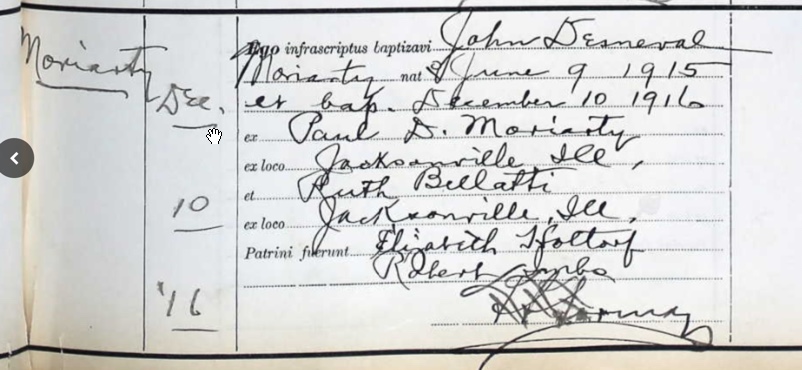 Moriarty
Dec.
10
'16
Ego infrascriptus baptizavi John
Moriarty nat June 9 1915
et bap. December 10 1916
ex Paul D. Moriarty
ex loco Jacksonville Ill,
et Ruth Bellatti
ex loco Jacksonville, Ill.
Patrini fuerunt Elizabeth
Robert